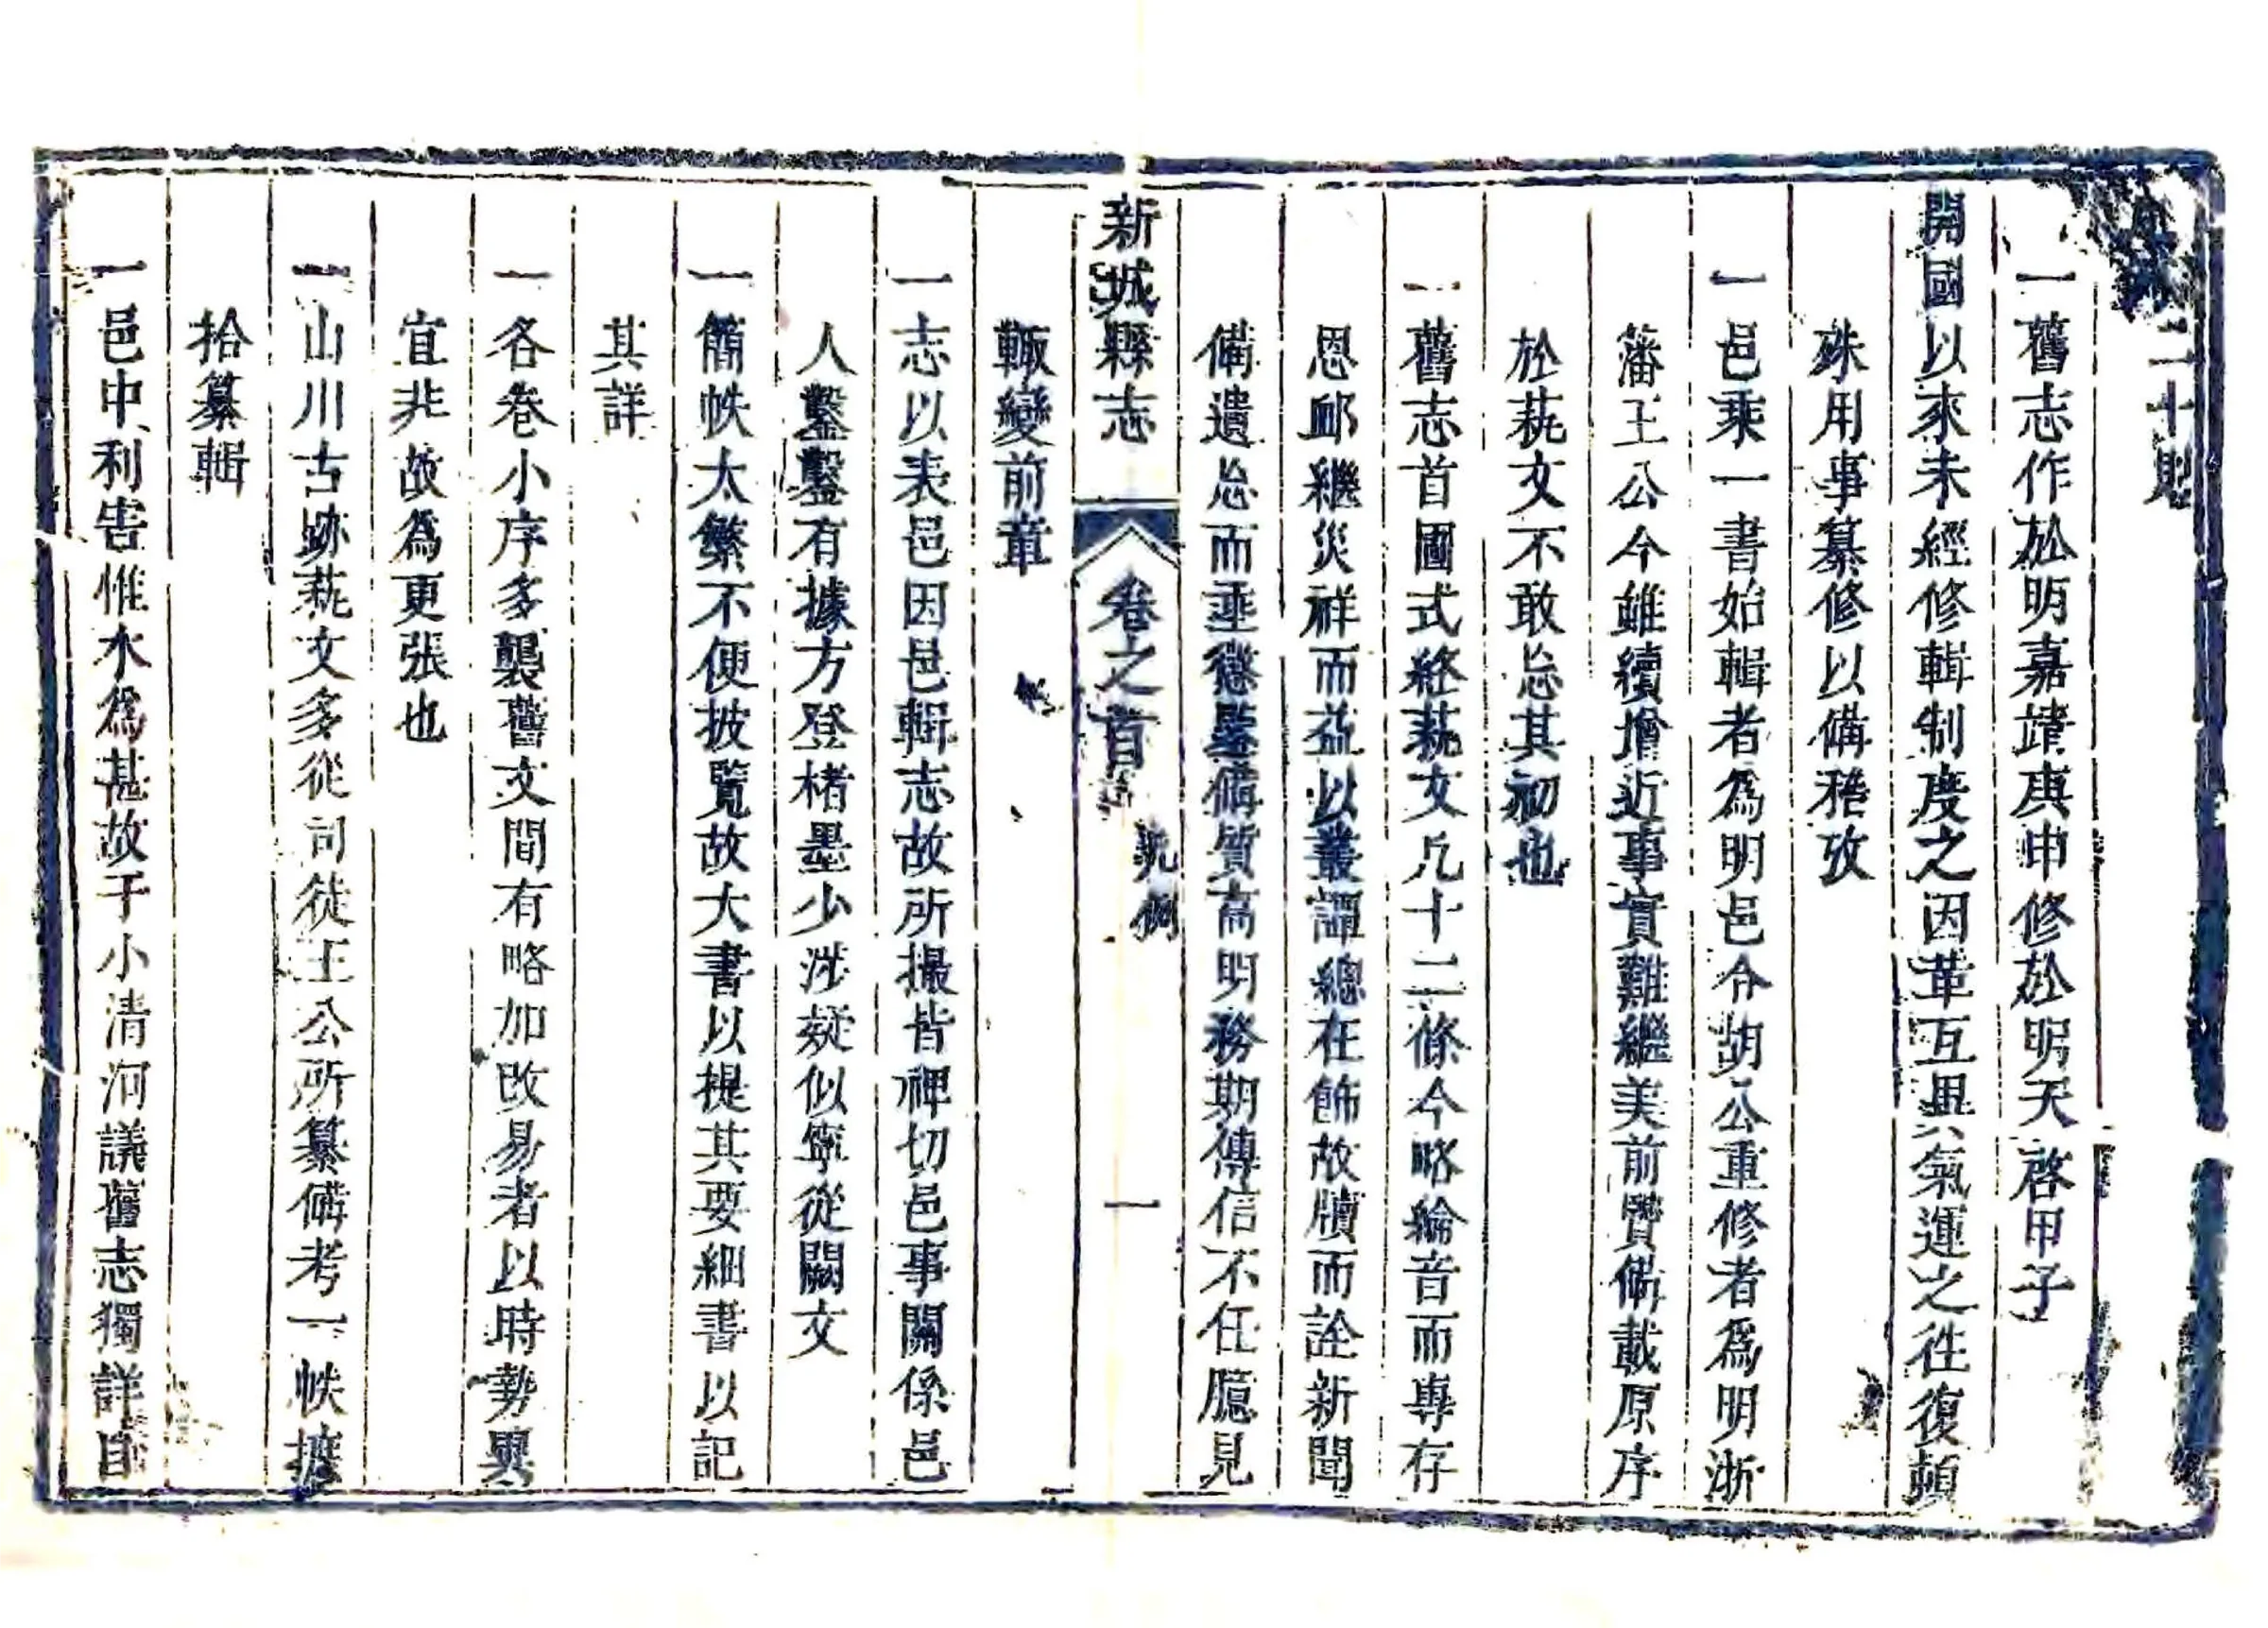 二十則
一舊志作於明嘉靖庚申修於明天啓甲子
開國以來未經修輯制度之因革互異氣運之徃復頓
殊用事纂修以備稽攷
一邑乗一書始輯者為明邑令胡公重修者為明浙
藩王公今雖續增近事實難繼美前賢備載原序
於萟文不敢忘其初也
一舊志首圖式終萟文凡十二條今略綸音而專存
恩卹繼災祥而益以叢譚總在飾故牘而詮新聞
備遺忘而垂懲鑒備質高明務期傳信不任臆見
新城縣志
卷之首
凢例
一
輒變前章
一志以表邑因邑輯志故所撮皆裨切邑事關係邑
人鑿鑿有據方登楮墨少涉疑似寧從闕文
一簡帙太繁不便披覧故大書以提其要細書以記
其詳
一各卷小序多襲舊文間有略加改易者以時勢異
宜非故為更張也
一山川古跡萟文多從司徒王公所纂備考一帙摭
拾纂輯
一邑中利害惟水為甚故于小清河議舊志獨詳自